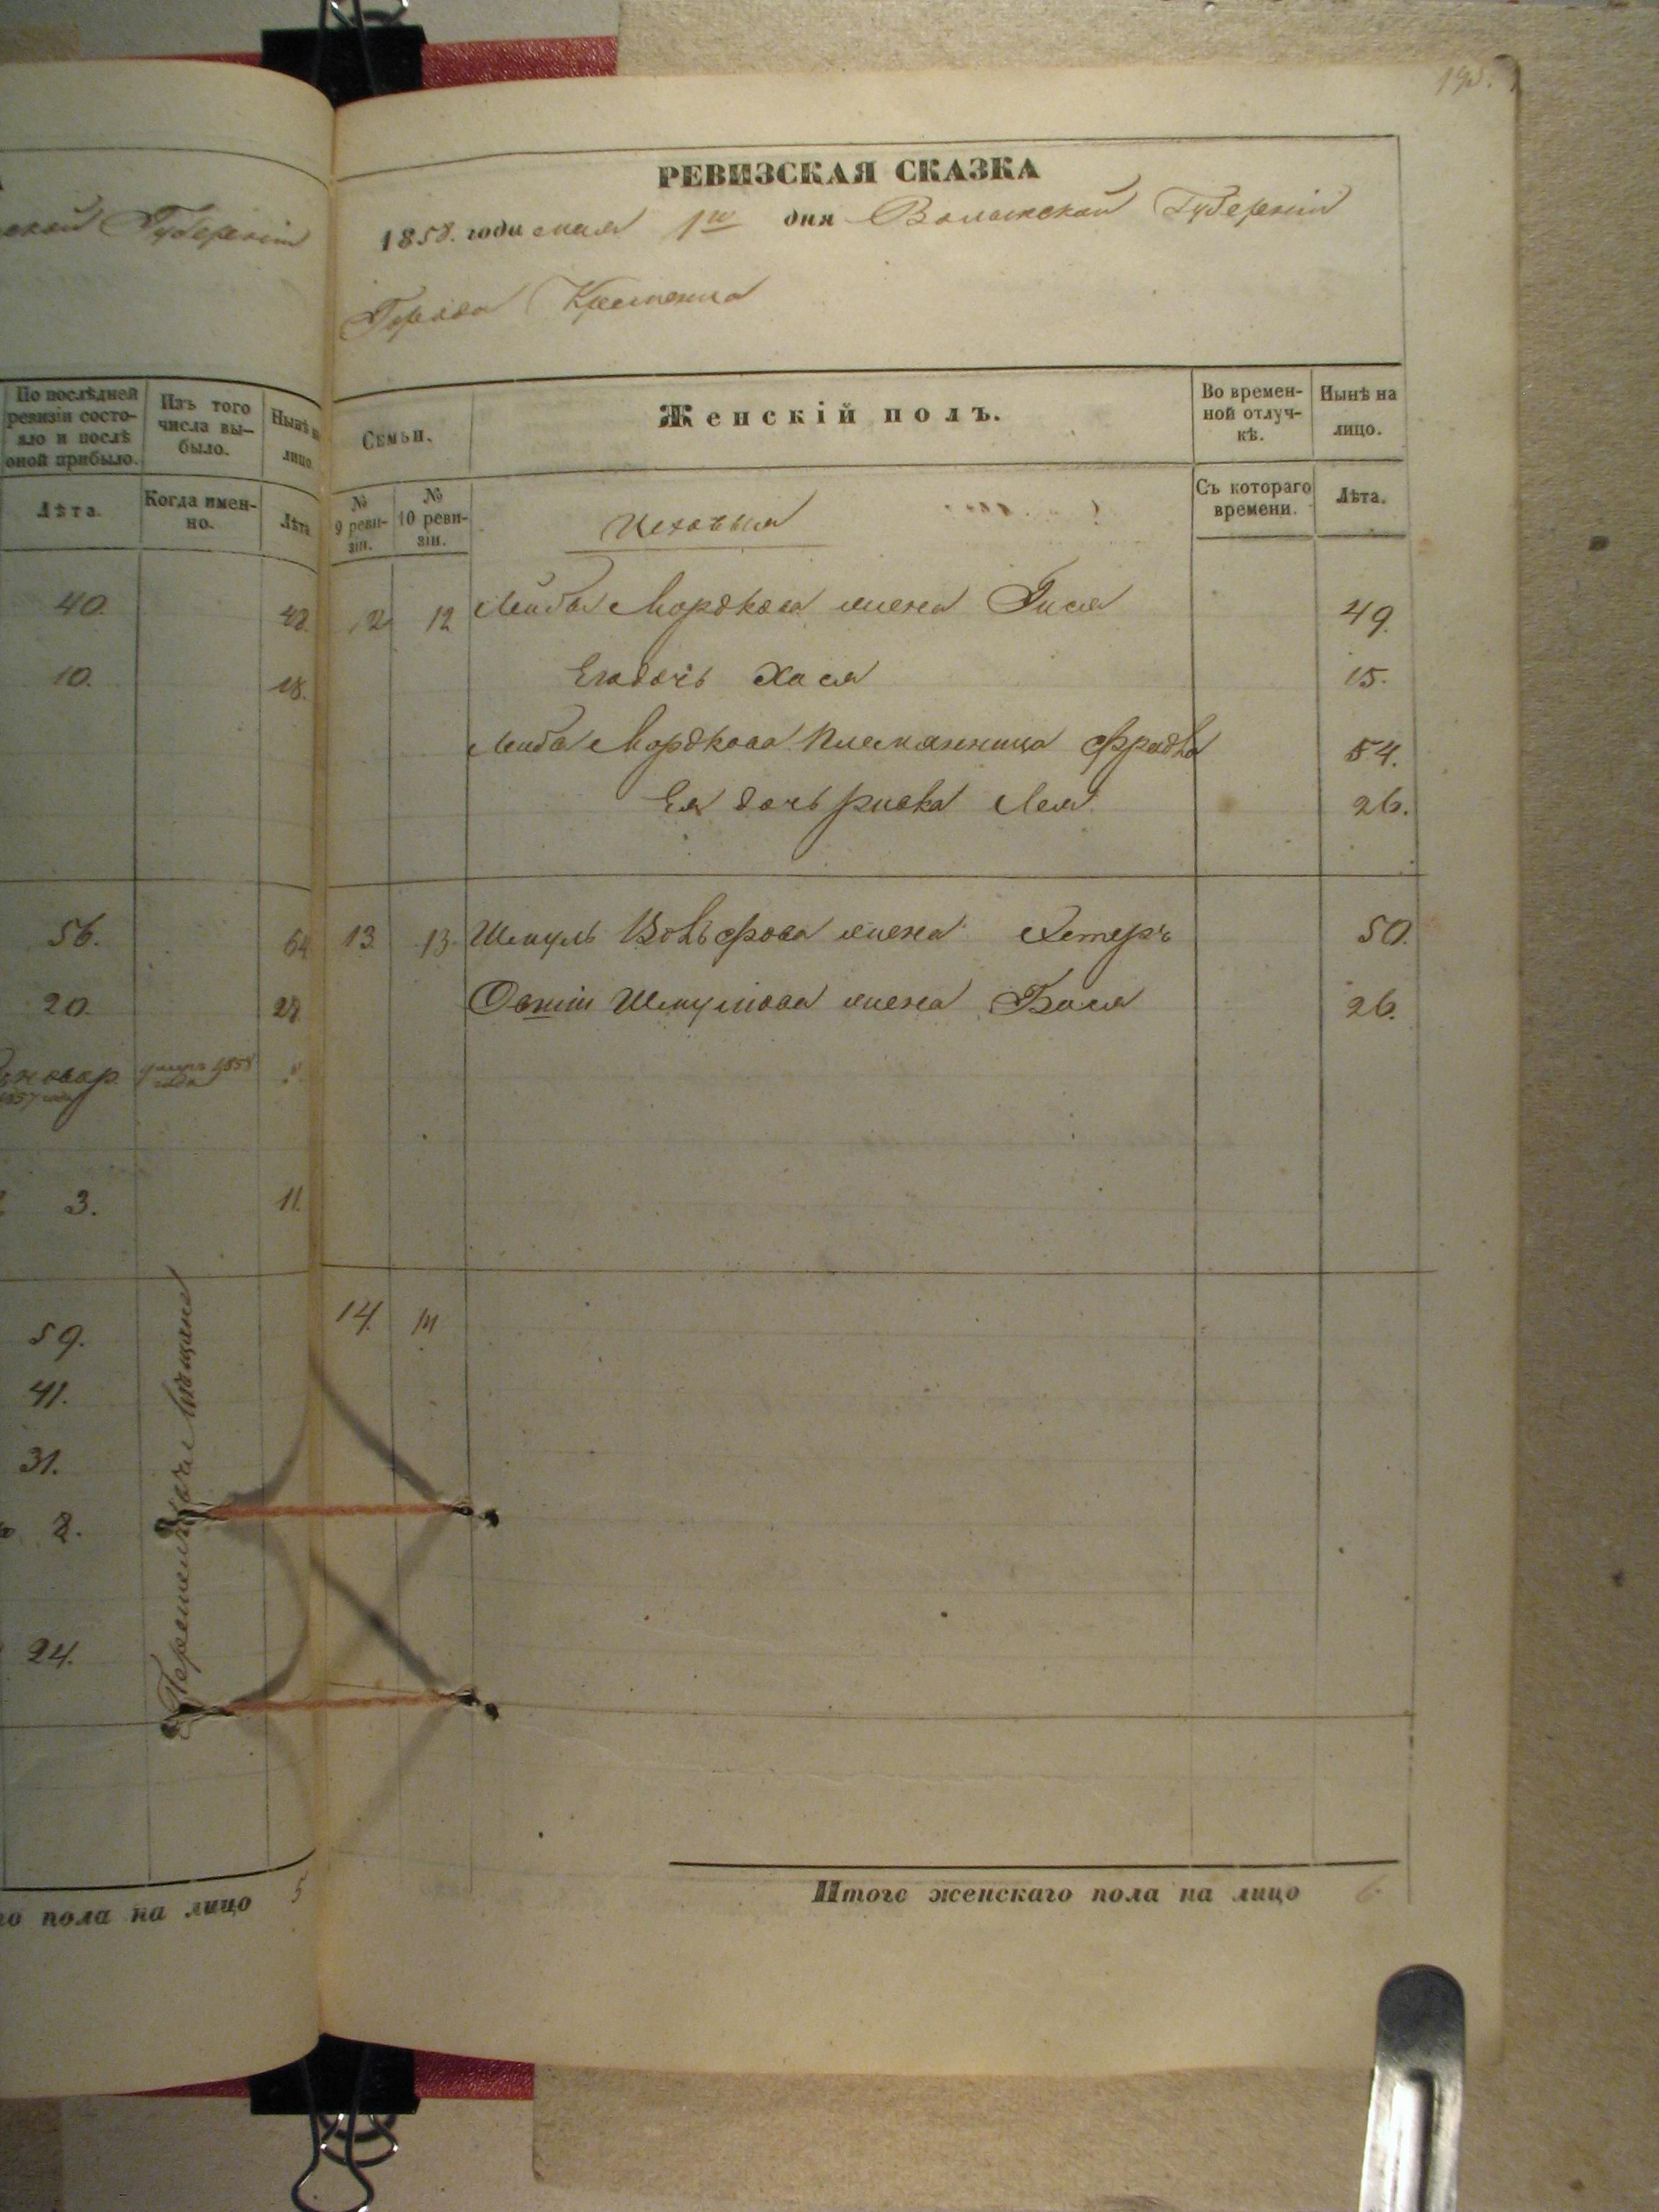 195.
РЕВИЗСКАЯ СКАЗКА
1858. года мая 1го дня Волынской Губерніи
Города Кременца
Семьи.
Женскій полъ.
Во времен-
ной отлуч-
кѣ.
Нынѣ на
лицо.
№
9 реви-
зіи.
№
10 реви-
зіи.
Съ котораго
времени.
Лѣта.
Цеховыя
12 12 Лейба Мордкова жена Гися 49.
Его дочь Хася 15.
Лейба Мордкова племянница Фрадля 54.
Ея дочь Ривка Лея 26.
13. 13. Шмуль Вольфова жена Эстеръ 50.
Овшіи Шмулiова жена Бася 26.
14. 14
Итого женскаго пола на лицо 6.
ской Губерніи
По послѣдней
ревизіи состо-
яло и послѣ
оной прибыло.
Изъ того
числа вы-
было.
Нынѣ на
лицо
Лѣта.
Когда имен-
но.
Лѣта
40. 48.
10. 18.
56. 64
20. 28.
умеръ 1858
года
3. 11.
59.
41.
31.
2.
24.
Перешел мѣщане
го пола на лицо 5